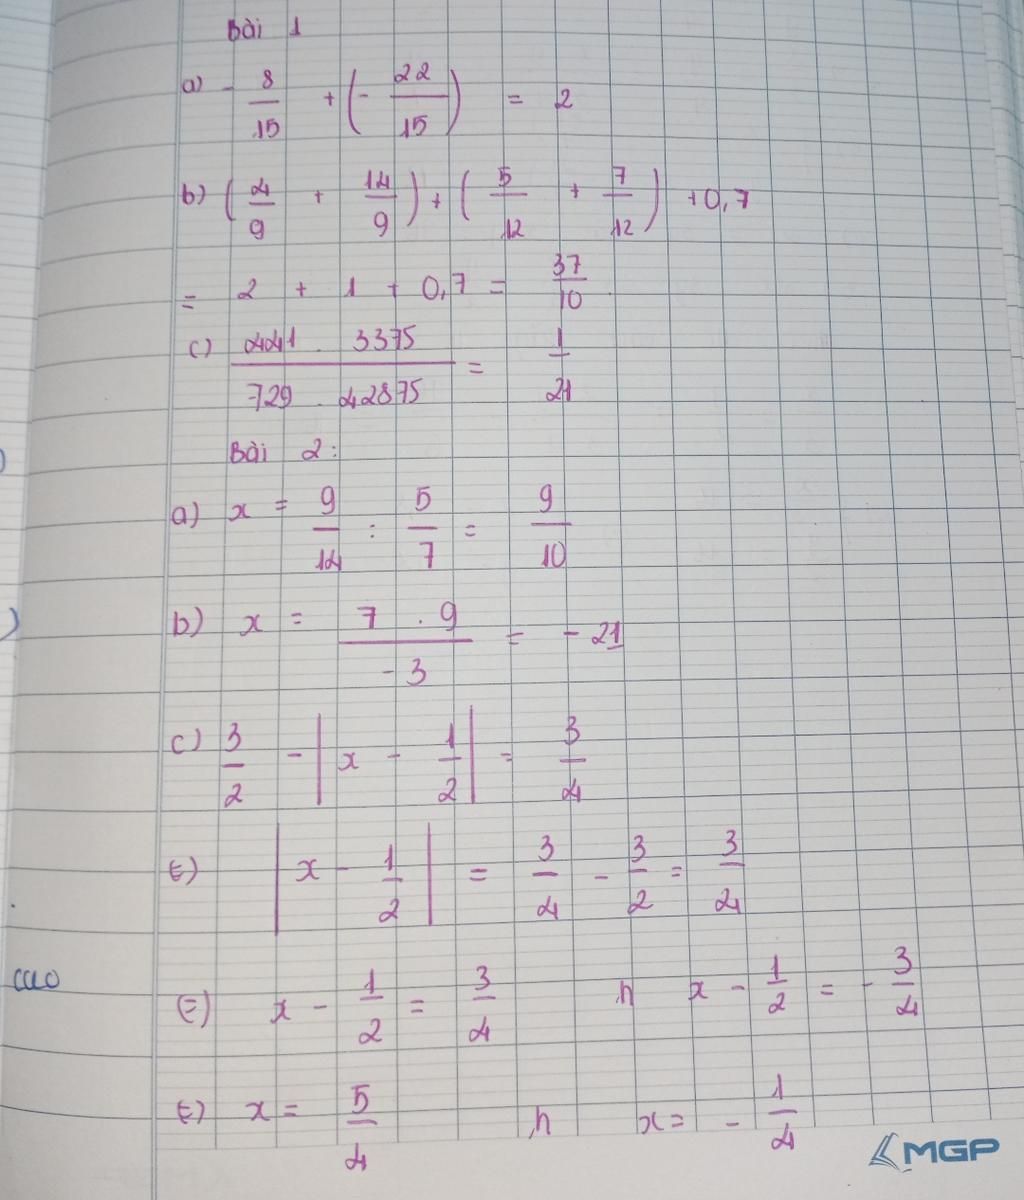 Bài 1
a) - 8/15 + (- 22/15) = 2
b) (4/9 + 14/9) + (5/12 + 7/12) + 0,7
= 2 + 1 + 0,7 = 37/10
c) (441 . 3375)/(729 . 42875) = 1/21
Bài 2:
a) x = 9/14 : 5/7 = 9/10
b) x = (7 . 9)/(-3) = - 21
c) 3/2 - |x - 1/2| = 3/4
(=) |x - 1/2| = 3/4 - 3/2 = 3/4
(=) x - 1/2 = 3/4 h x - 1/2 = - 3/4
(=) x = 5/4 h x = - 1/4
cao
MGP